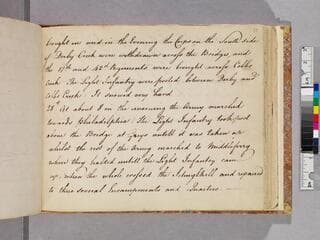 bought in and in the Evening the Corps on the South side
of Darby Creek were withdrawn across the Bridge, and
the 17th and 42d Regiments were brought across Cobbs
Creek. The Light Infantry were posted between Darby and
Cobbs Creek. It snowed very hard.
28 At about 8 in the morning the Army marched
towards Philadelphia. The Light Infantry took post
above the Bridge at Grays untill it was taken up
whilst the rest of the Army marched to Middleferry
where they halted untill the Light Infantry came
up, when the whole crossed the Schuylkill and repaired
to their several Encampments and Quarters.